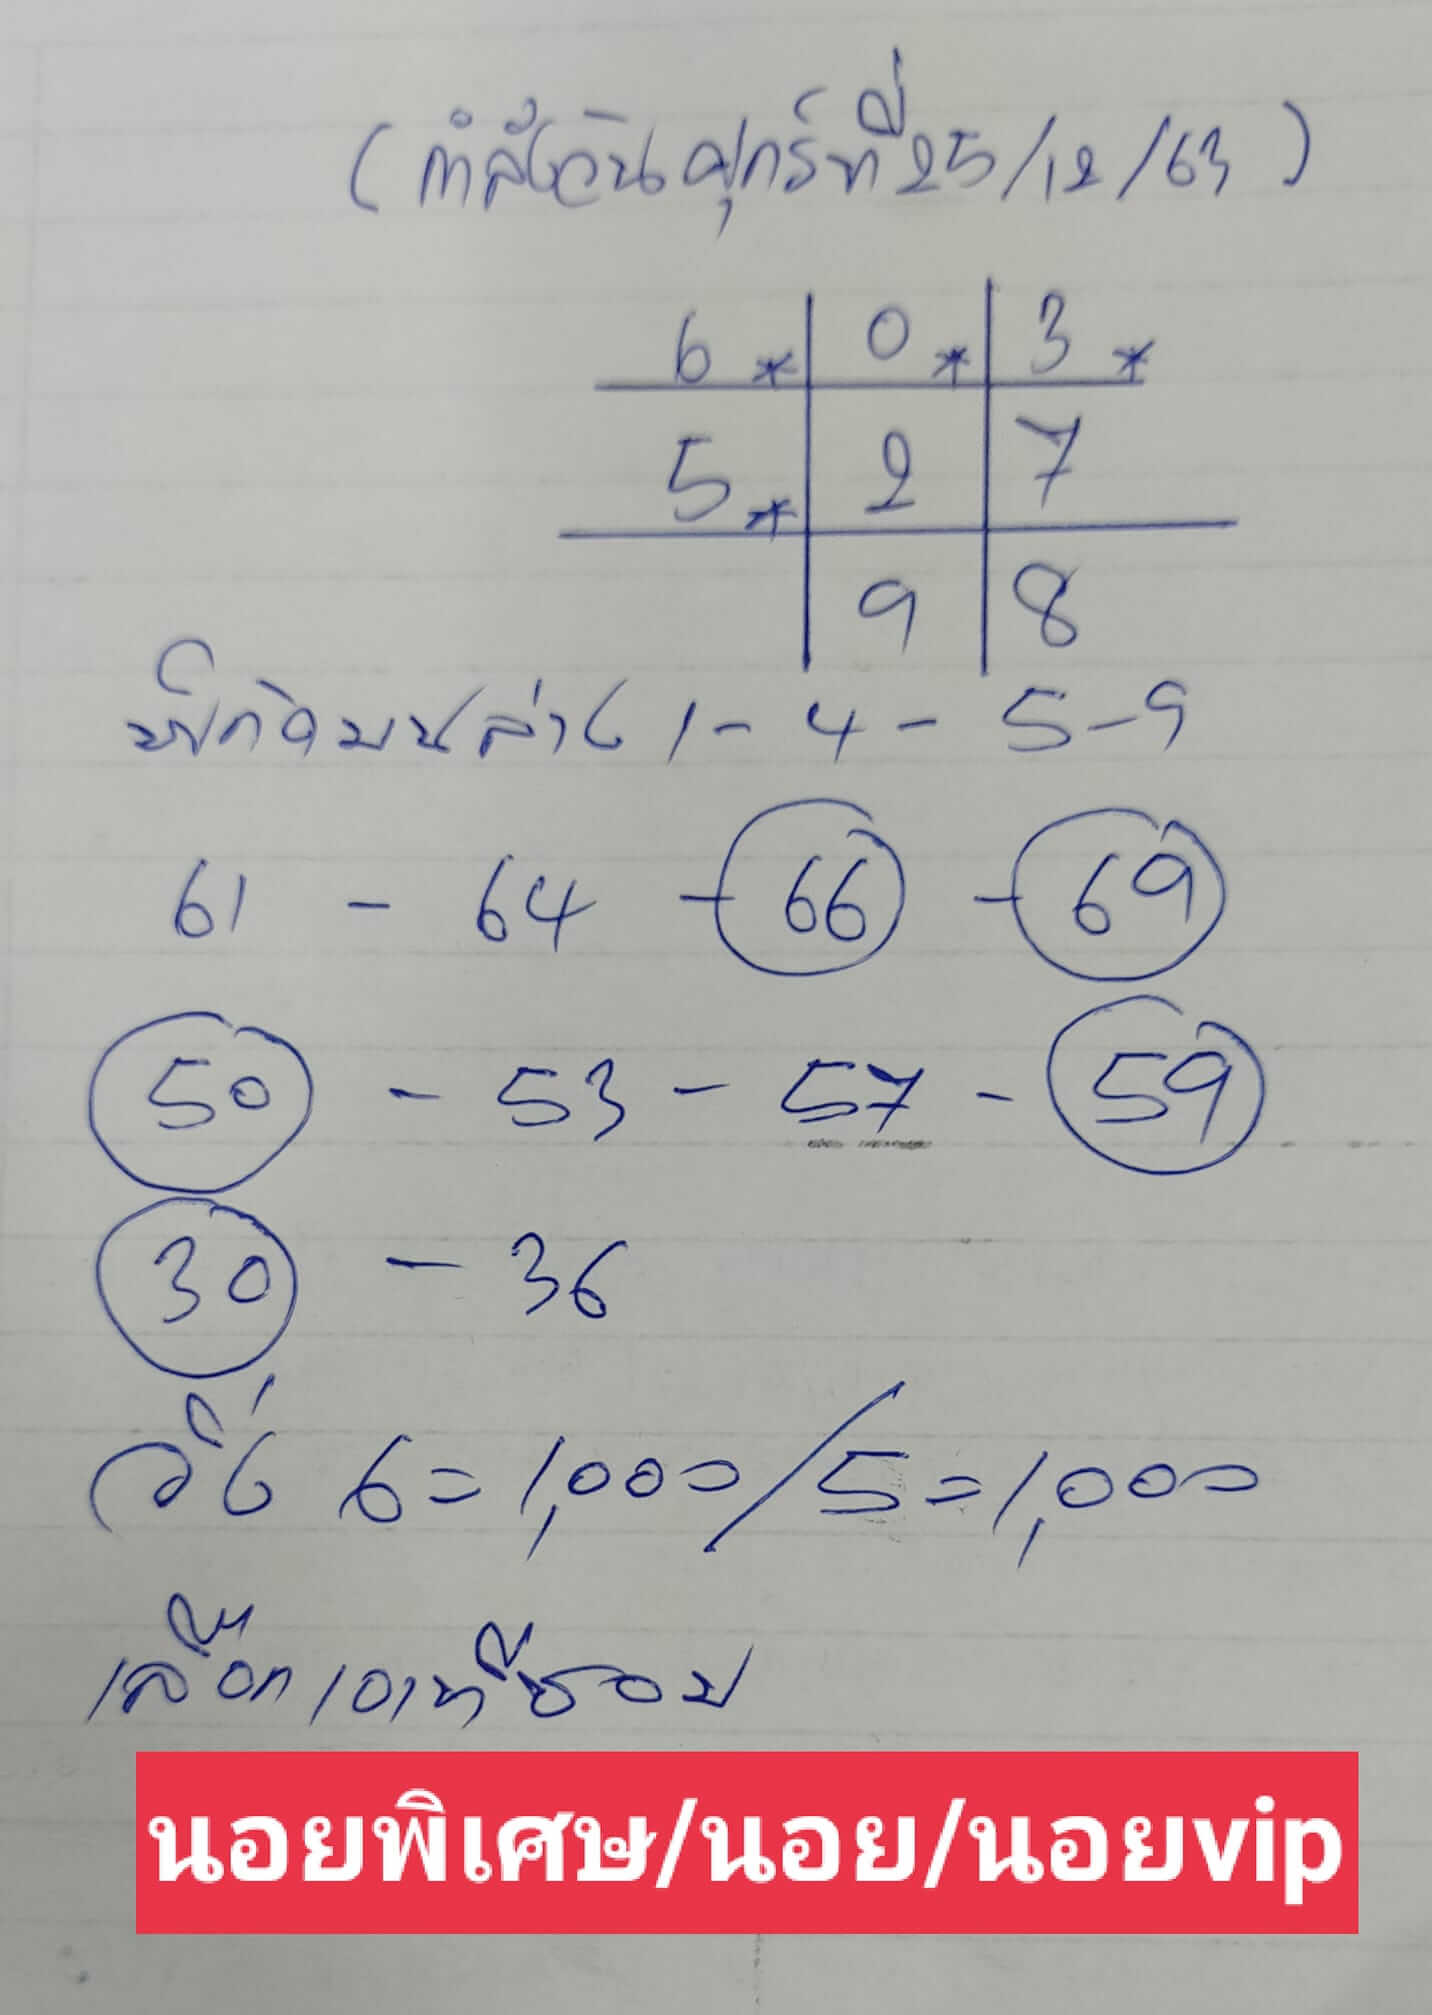 (กำลังวันศุกร์ที่25/12/63)
6* 0* 3*
5* 2 7
9 8
พิกัดบนล่าง 1-4-5-9
61 - 64 - 66 - 69
50 - 53 - 57 - 59
30 - 36
วิ่ง 6=1,000/5=1,000
เลือกเอาที่ชอบ
นอยพิเศษ/นอย/นอยvip